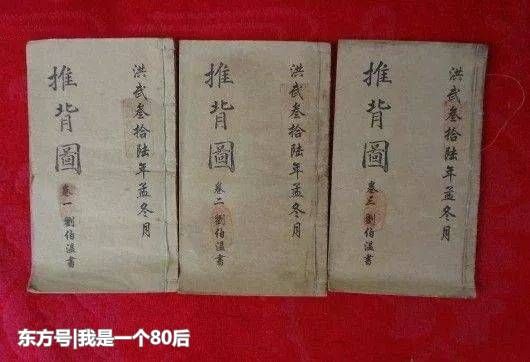 洪武叁拾陆年孟冬月
推背圖
卷一 劉伯温書
洪武叁拾陆年孟冬月
推背圖
卷二 劉伯温書
洪武叁拾陆年孟冬月
推背圖
卷三 劉伯温書
东方号|我是一个80后